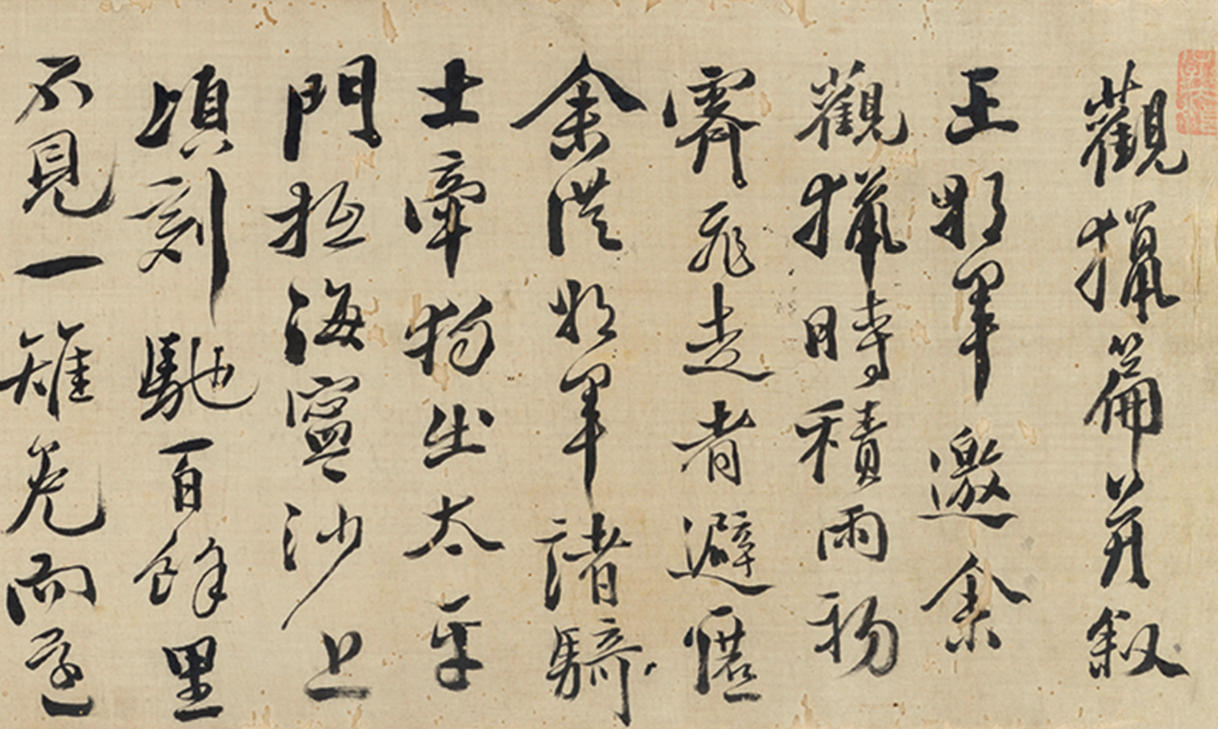 觀獵篇并叙
王將軍邀余
觀獵時積雨初
霽飛走者避
余從將軍諸騎
士牽狗出太平
門抵海寧沙上
頃刻馳百餘里
不見一雉兔而還